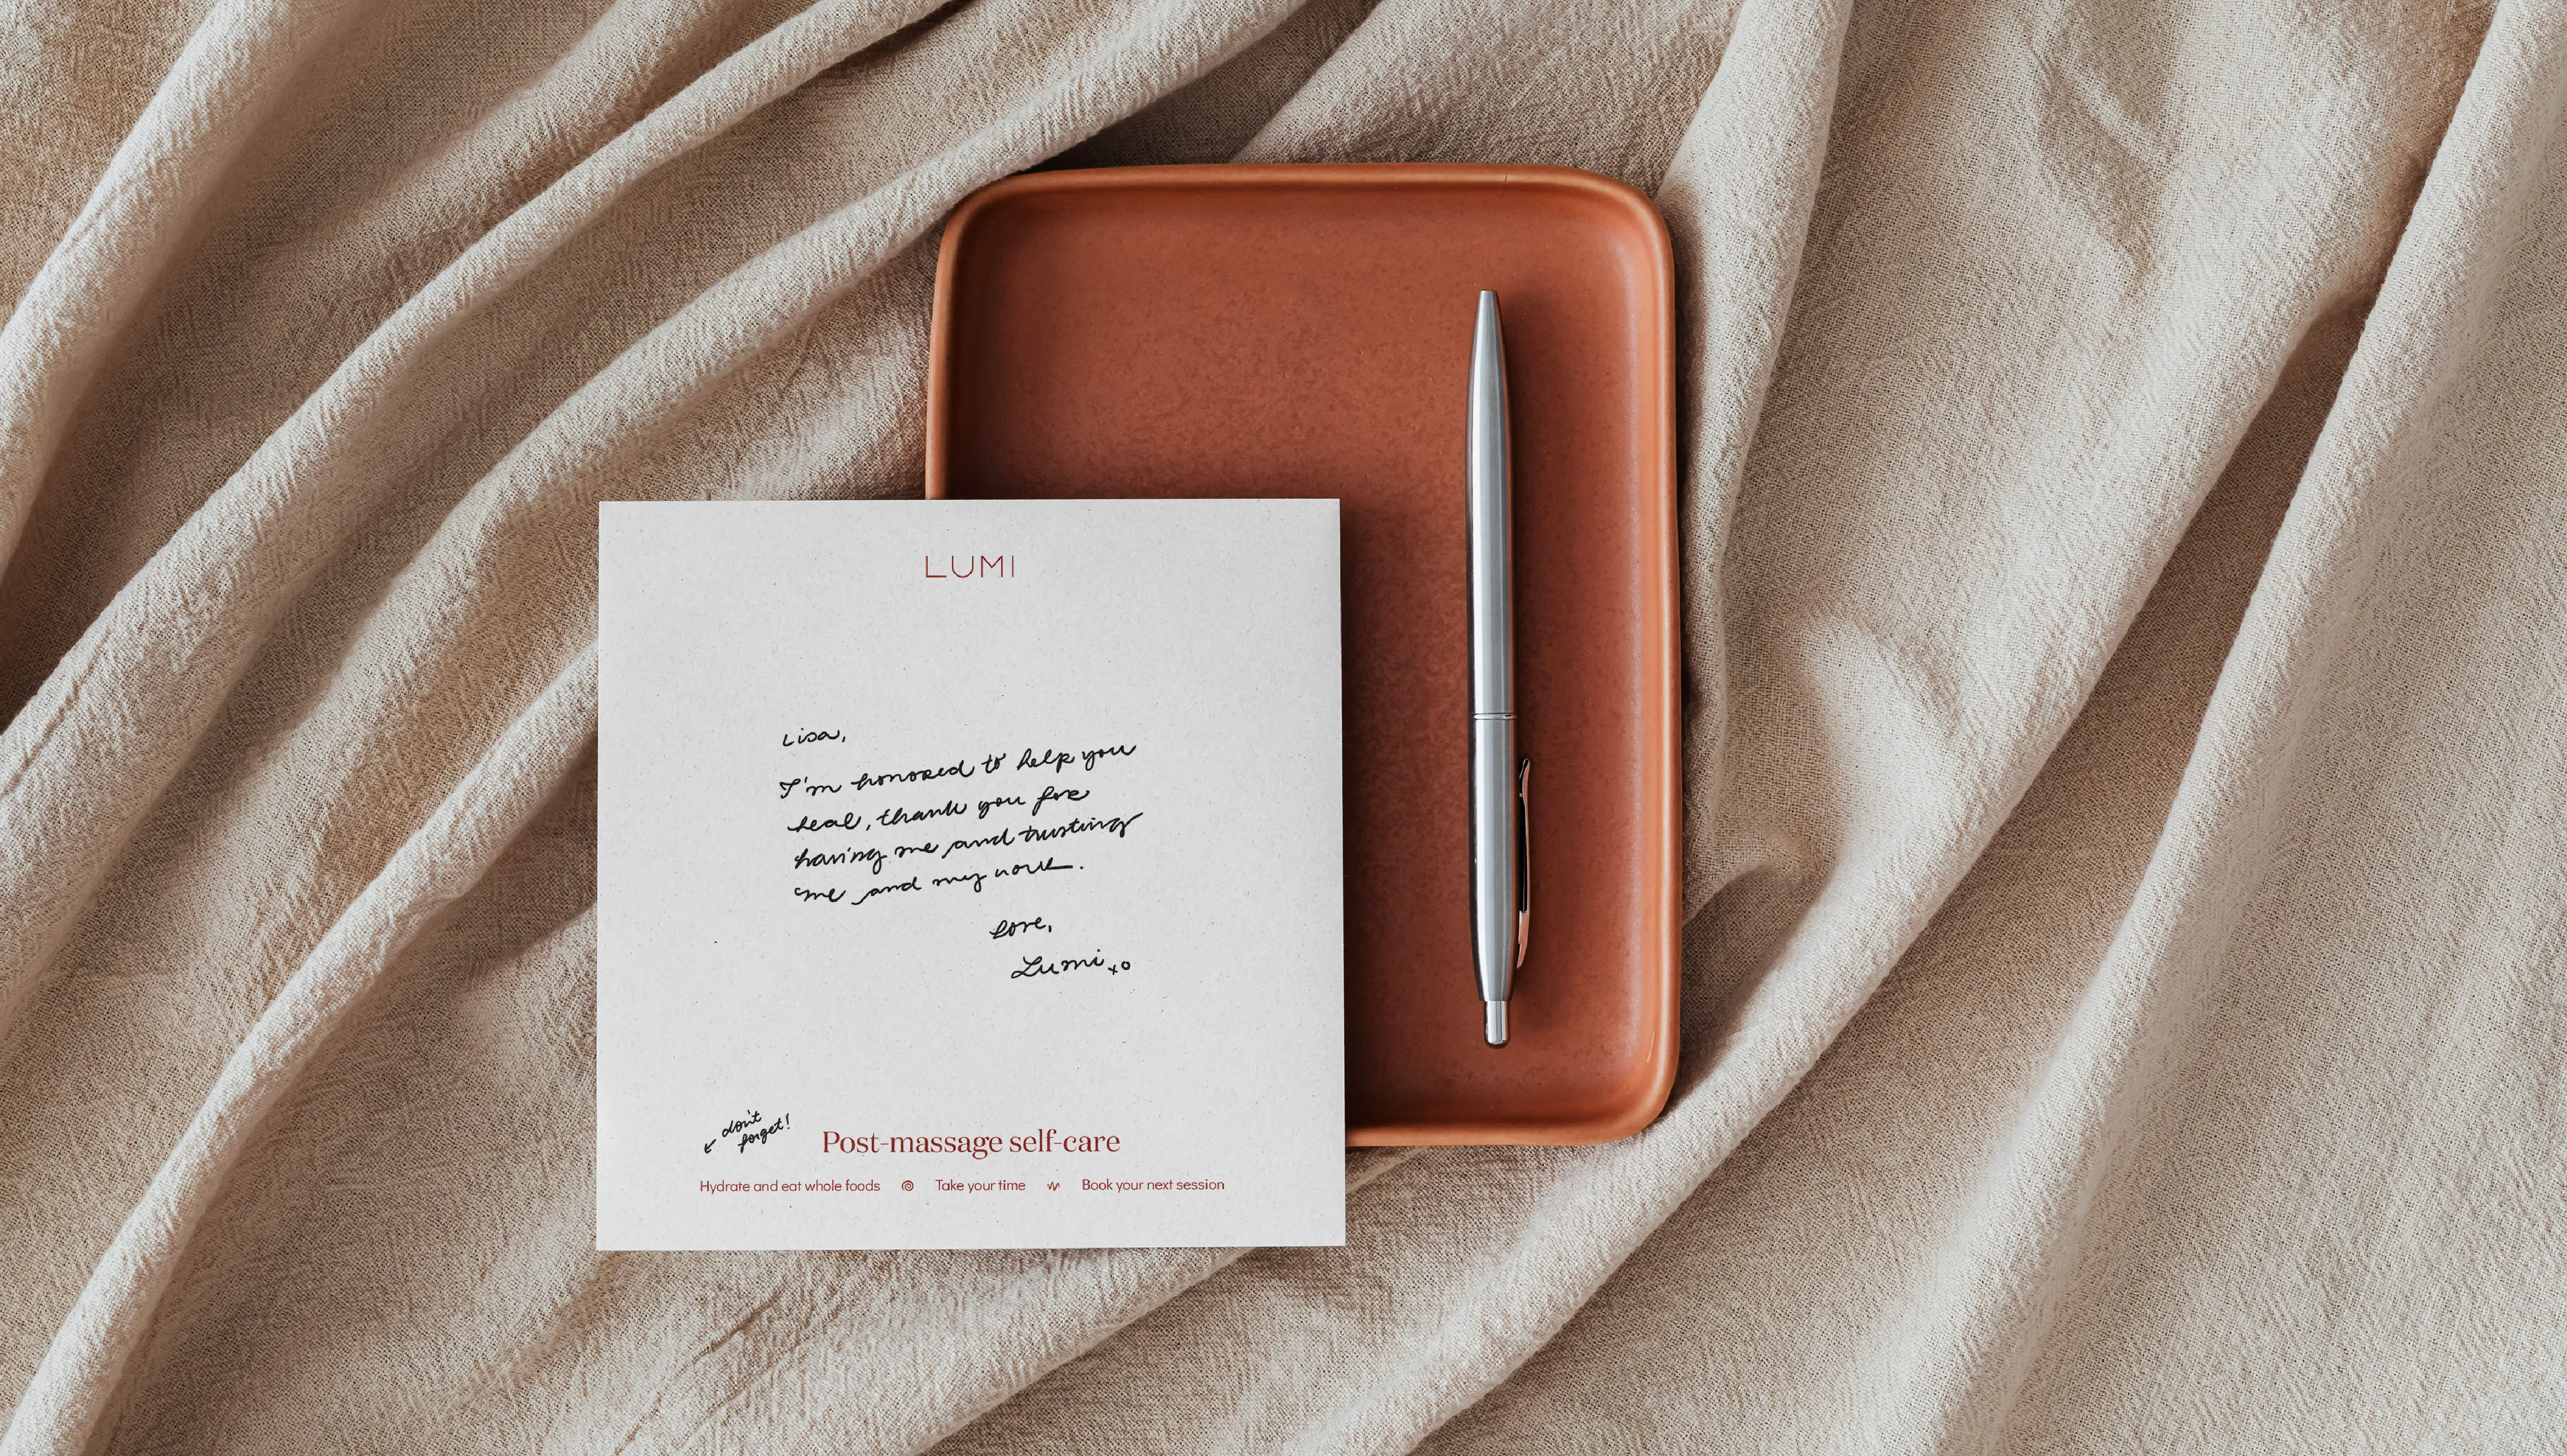 LUMI
Lisa,
I'm honored to help you
heal, thank you for
having me and trusting
me and my work.
Love,
Lumi xo
don't
forget!
Post-massage self-care
Hydrate and eat whole foods Take your time Book your next session